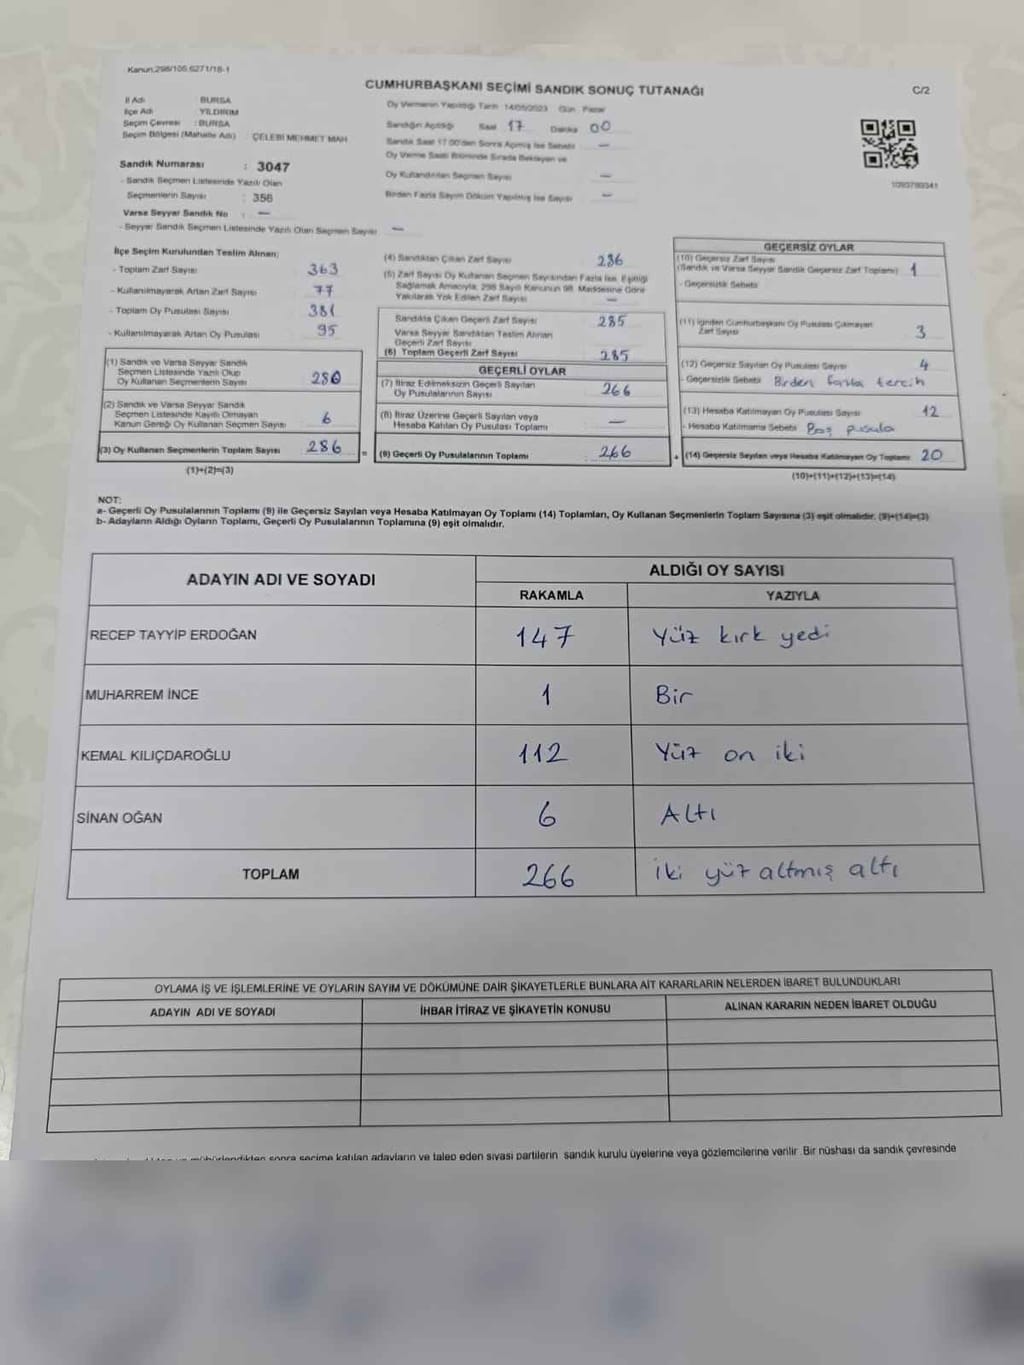 Kanun:298/105,6271/18-1
CUMHURBAŞKANI SEÇİMİ SANDIK SONUÇ TUTANAĞI
C/2
İl Adı BURSA
İlçe Adı YILDIRIM
Seçim Çevresi : BURSA
Seçim Bölgesi (Mahalle Adı) : ÇELEBİ MEHMET MAH
Oy Vermenin Yapıldığı Tarih 14/05/2023 Gün Pazar
Sandığın Açıldığı Saat 17 Dakika 00
Sandık Saat 17.00'den Sonra Açılmış İse Sebebi —
Oy Verme Saati Bitiminde Sırada Bekleyen ve
Oy Kullandırılan Seçmen Sayısı —
Birden Fazla Sayım Döküm Yapılmış İse Sayısı —
Sandık Numarası : 3047
- Sandık Seçmen Listesinde Yazılı Olan
Seçmenlerin Sayısı : 356
Varsa Seyyar Sandık No : —
- Seyyar Sandık Seçmen Listesinde Yazılı Olan Seçmen Sayısı —
1093789341
İlçe Seçim Kurulundan Teslim Alınan;
- Toplam Zarf Sayısı 363
- Kullanılmayarak Artan Zarf Sayısı 77
- Toplam Oy Pusulası Sayısı 381
- Kullanılmayarak Artan Oy Pusulası 95
(1) Sandık ve Varsa Seyyar Sandık
Seçmen Listesinde Yazılı Olup
Oy Kullanan Seçmenlerin Sayısı 280
(2) Sandık ve Varsa Seyyar Sandık
Seçmen Listesinde Kayıtlı Olmayan
Kanun Gereği Oy Kullanan Seçmen Sayısı 6
(3) Oy Kullanan Seçmenlerin Toplam Sayısı 286
(1)+(2)=(3)
(4) Sandıktan Çıkan Zarf Sayısı 286
(5) Zarf Sayısı Oy Kullanan Seçmen Sayısından Fazla İse, Eşitliği
Sağlamak Amacıyla; 298 Sayılı Kanunun 98. Maddesine Göre
Yakılarak Yok Edilen Zarf Sayısı —
Sandıkta Çıkan Geçerli Zarf Sayısı 285
Varsa Seyyar Sandıktan Teslim Alınan
Geçerli Zarf Sayısı
(6) Toplam Geçerli Zarf Sayısı 285
GEÇERLİ OYLAR
(7) İtiraz Edilmeksizin Geçerli Sayılan
Oy Pusulalarının Sayısı 266
(8) İtiraz Üzerine Geçerli Sayılan veya
Hesaba Katılan Oy Pusulası Toplamı —
= (9) Geçerli Oy Pusulalarının Toplamı 266
GEÇERSİZ OYLAR
(10) Geçersiz Zarf Sayısı
(Sandık ve Varsa Seyyar Sandık Geçersiz Zarf Toplamı) 1
- Geçersizlik Sebebi
(11) İçinden Cumhurbaşkanı Oy Pusulası Çıkmayan
Zarf Sayısı 3
(12) Geçersiz Sayılan Oy Pusulası Sayısı 4
- Geçersizlik Sebebi Birden fazla tercih
(13) Hesaba Katılmayan Oy Pusulası Sayısı 12
- Hesaba Katılmama Sebebi Boş pusula
+ (14) Geçersiz Sayılan veya Hesaba Katılmayan Oy Toplamı 20
(10)+(11)+(12)+(13)=(14)
NOT:
a- Geçerli Oy Pusulalarının Toplamı (9) ile Geçersiz Sayılan veya Hesaba Katılmayan Oy Toplamı (14) Toplamları, Oy Kullanan Seçmenlerin Toplam Sayısına (3) eşit olmalıdır. (9)+(14)=(3)
b- Adayların Aldığı Oyların Toplamı, Geçerli Oy Pusulalarının Toplamına (9) eşit olmalıdır.
ADAYIN ADI VE SOYADI
ALDIĞI OY SAYISI
RAKAMLA YAZIYLA
RECEP TAYYİP ERDOĞAN 147 Yüz kırk yedi
MUHARREM İNCE 1 Bir
KEMAL KILIÇDAROĞLU 112 Yüz on iki
SİNAN OĞAN 6 Altı
TOPLAM 266 iki yüz altmış altı
OYLAMA İŞ VE İŞLEMLERİNE VE OYLARIN SAYIM VE DÖKÜMÜNE DAİR ŞİKAYETLERLE BUNLARA AİT KARARLARIN NELERDEN İBARET BULUNDUKLARI
ADAYIN ADI VE SOYADI İHBAR İTİRAZ VE ŞİKAYETİN KONUSU ALINAN KARARIN NEDEN İBARET OLDUĞU
mühürlendikten sonra seçime katılan adayların ve talep eden siyasi partilerin sandık kurulu üyelerine veya gözlemcilerine verilir. Bir nüshası da sandık çevresinde